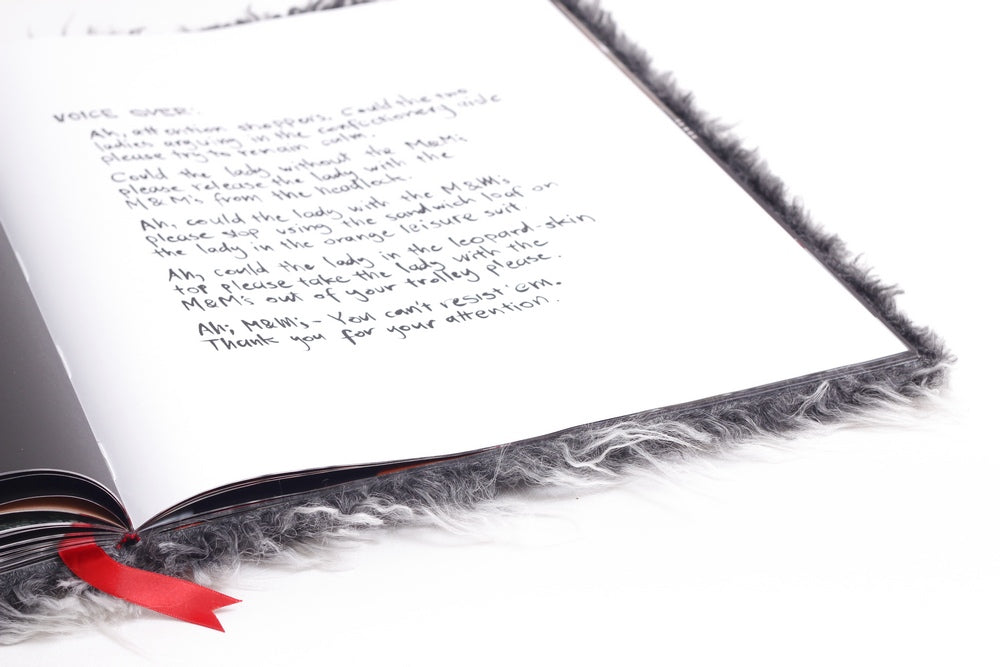 VOICE OVER:
Ah, attention shoppers. Could the two
ladies arguing in the confectionery aisle
please try to remain calm.
Could the lady without the M&Ms
please release the lady with the
M&M's from the headlock.
Ah, could the lady with the M&M's
please stop using the sandwich loaf on
the lady in the orange leisure suit.
Ah, could the lady in the leopard-skin
top please take the lady with the
M&M's out of your trolley please.
Ah, M&M's - You can't resist 'em.
Thank you for your attention.